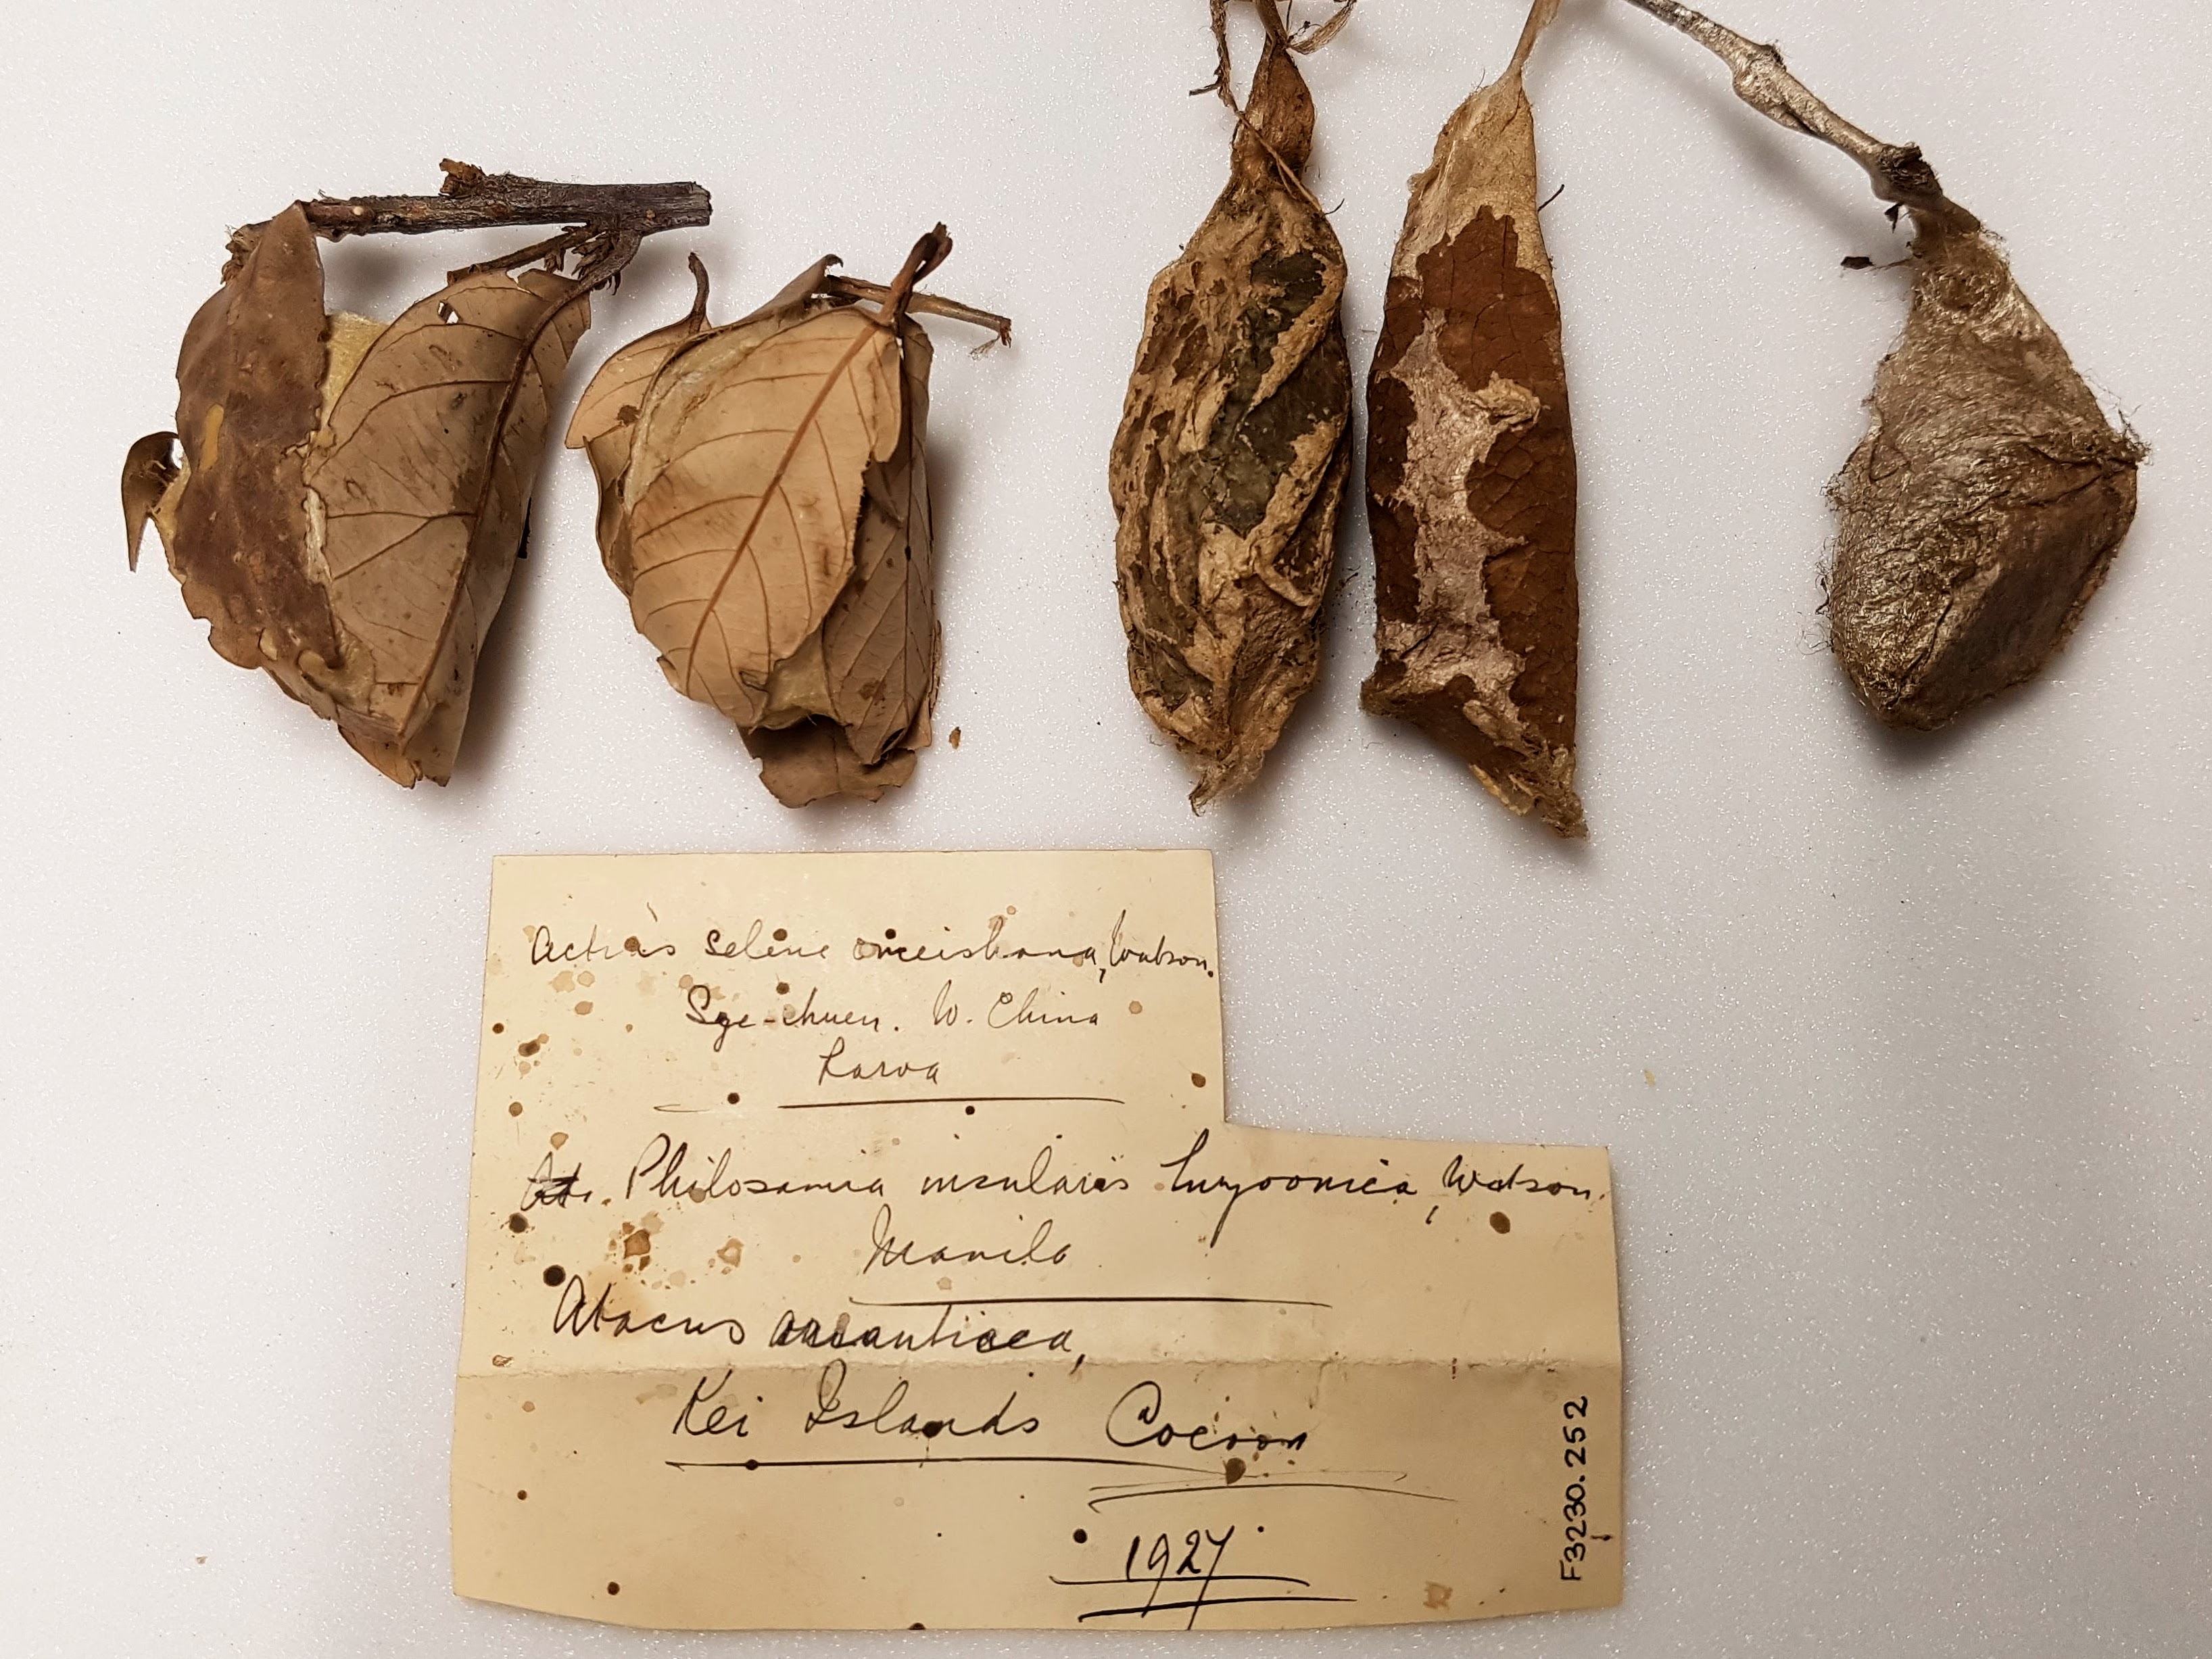 Actias selene omeishana, Watson.
Sze-chuen. W. China
Larva
Philosamia insularis luzonica, Watson.
Manila
Atacus aurantiaca,
Kei Islands Cocoon
1927
F3230.252